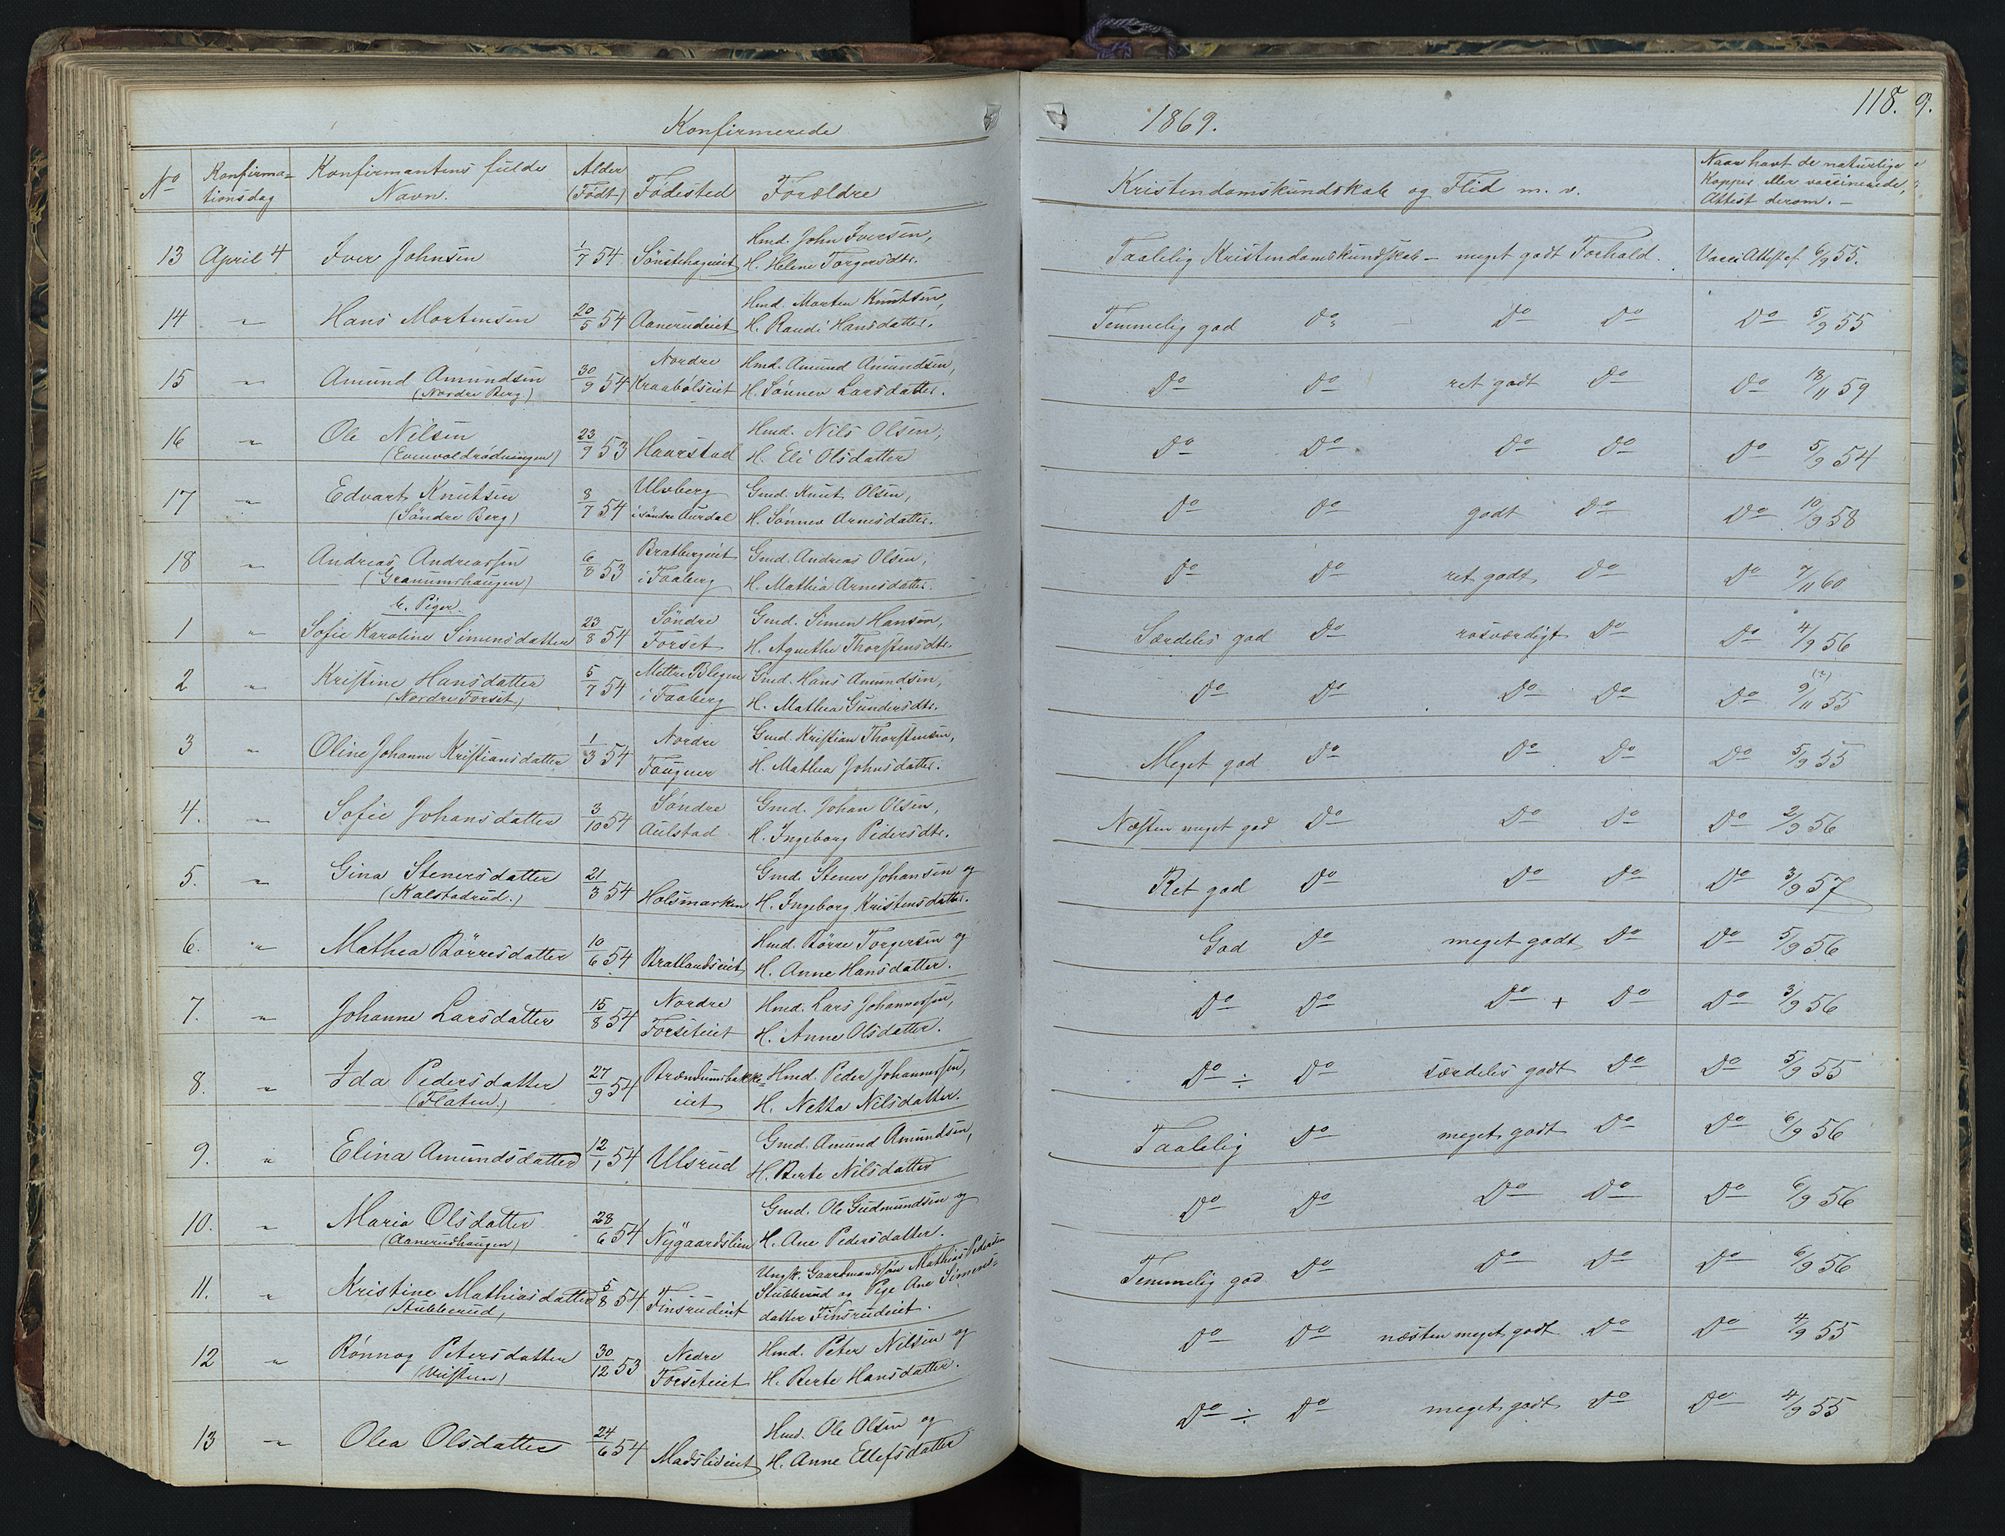 Konfirmerede
1869.
118. 9.
No
Konfirma-
tionsdag
Konfirmantens fulde
Navn.
Alder
(Født)
Fødested
Forældre
Kristendomskundskab og Flid m. v.
Naar havt de naturlige
Kopper eller vaccinerede,
Attest derom. —
13 April 4 Iver Johnsen 1/7 54 Hmd. John Iversen,
H. Helene Torgersdtr.
Taalelig Kristendomskundskab — meget godt Forhold. Vacc. Attest af 6/9 55.
14 " Hans Mortensen 20/5 54 Aanerudeiet Hmd. Morten Knutsen,
H. Randi Hansdatter.
Temmelig god Do — Do Do Do 5/9 55
15 " Amund Amundsen 30/9 54 Nordre Hmd. Amund Amundsen,
(Nordre Berg) Kraabølseiet H. Sønnev Larsdatter.
Do Do ret godt Do Do 18/11 59
16 " Ole Nilsen 23/9 53 Haarstad Hmd. Nils Olsen,
(Evenvoldrødningen) H. Eli Olsdatter
Do Do Do Do Do 5/9 54
17 " Edvart Knutsen 8/7 54 Ulvberg Gmd. Knut Olsen,
(Søndre Berg) i Søndre Aurdal H. Sønnev Arnesdatter.
Do Do godt Do Do 10/9 58
18 " Andreas Andreassen 6/8 53 Bratbergeiet Gmd. Andreas Olsen,
(Granumshaugen) i Faaberg H. Mathia Arnesdatter.
Do Do ret godt Do Do 7/11 60
b. Piger.
1 " Sofie Karoline Simensdatter 23/8 54 Søndre Gmd. Simen Hansen,
Forset H. Agnethe Thorstensdtr.
Særdeles god Do rosværdigt Do Do 4/9 56
2 " Kristine Hansdatter 5/7 54 Mettre Blegen Gmd. Hans Amundsen,
(Nordre Forset) i Faaberg H. Mathea Gundersdtr.
Do Do Do Do Do 9/11 55
3 " Oline Johanne Kristiansdatter 1/3 54 Nordre Gmd. Kristian Thorstensen,
Fougner H. Mathea Johnsdatter.
Meget god Do Do Do Do 5/9 55
4. " Sofie Johansdatter 3/10 54 Søndre Gmd. Johan Olsen,
Aulstad H. Ingeborg Pedersdtr.
Næsten meget god Do Do Do Do 2/9 56
5. " Gina Stenersdatter 21/3 54 Holsmarken Gmd. Stener Johansen og
(Kalstadrud.) H. Ingeborg Kristensdatter.
Ret god Do Do Do Do 3/9 57
6. " Mathea Børresdatter 10/6 54 Bratlandseiet Hmd. Børre Torgersen og
H. Anne Hansdatter.
God Do meget godt Do Do 5/9 56
7. " Johanne Larsdatter 15/8 54 Nordre Hmd. Lars Johannessen,
Forseteiet H. Anne Olsdatter.
Do Do Do + Do Do 3/9 56
8. " Ida Pedersdatter 27/9 54 Brændumsbakke- Hmd. Peder Johannessen,
(Flaten.) eiet H. Netta Nilsdatter.
Do ÷ Do særdeles godt Do Do 5/9 55
9. " Elina Amundsdatter 12/1 54 Ulsrud Gmd. Amund Amundsen,
H. Berte Nilsdatter
Taalelig Do meget godt Do Do 6/9 56
10. " Maria Olsdatter 28/6 54 Nygaardslien Gmd. Ole Gudmundsen og
(Aanerudhaugen) H. Ane Pedersdatter.
Do Do Do Do Do 6/9 56
11. " Kristine Mathiasdatter 5/8 54 Finsrudeiet Ungk. Gaardmandssøn Mathias Pedersen
(Stubberud) Stubberud og Pige Ane Simens-
datter Finsrudeiet.
Temmelig god Do Do Do Do 6/9 56
12 " Rønnog Petersdatter 30/12 53 Nedre Hmd. Peter Nilsen og
Forseteiet H. Berte Hansdatter.
Do Do næsten meget godt Do Do 4/9 55
13 " Olea Olsdatter 24/6 54 Madslieiet Hmd. Ole Olsen og
H. Anne Ellefsdatter
Do ÷ Do meget godt Do Do 4/9 55